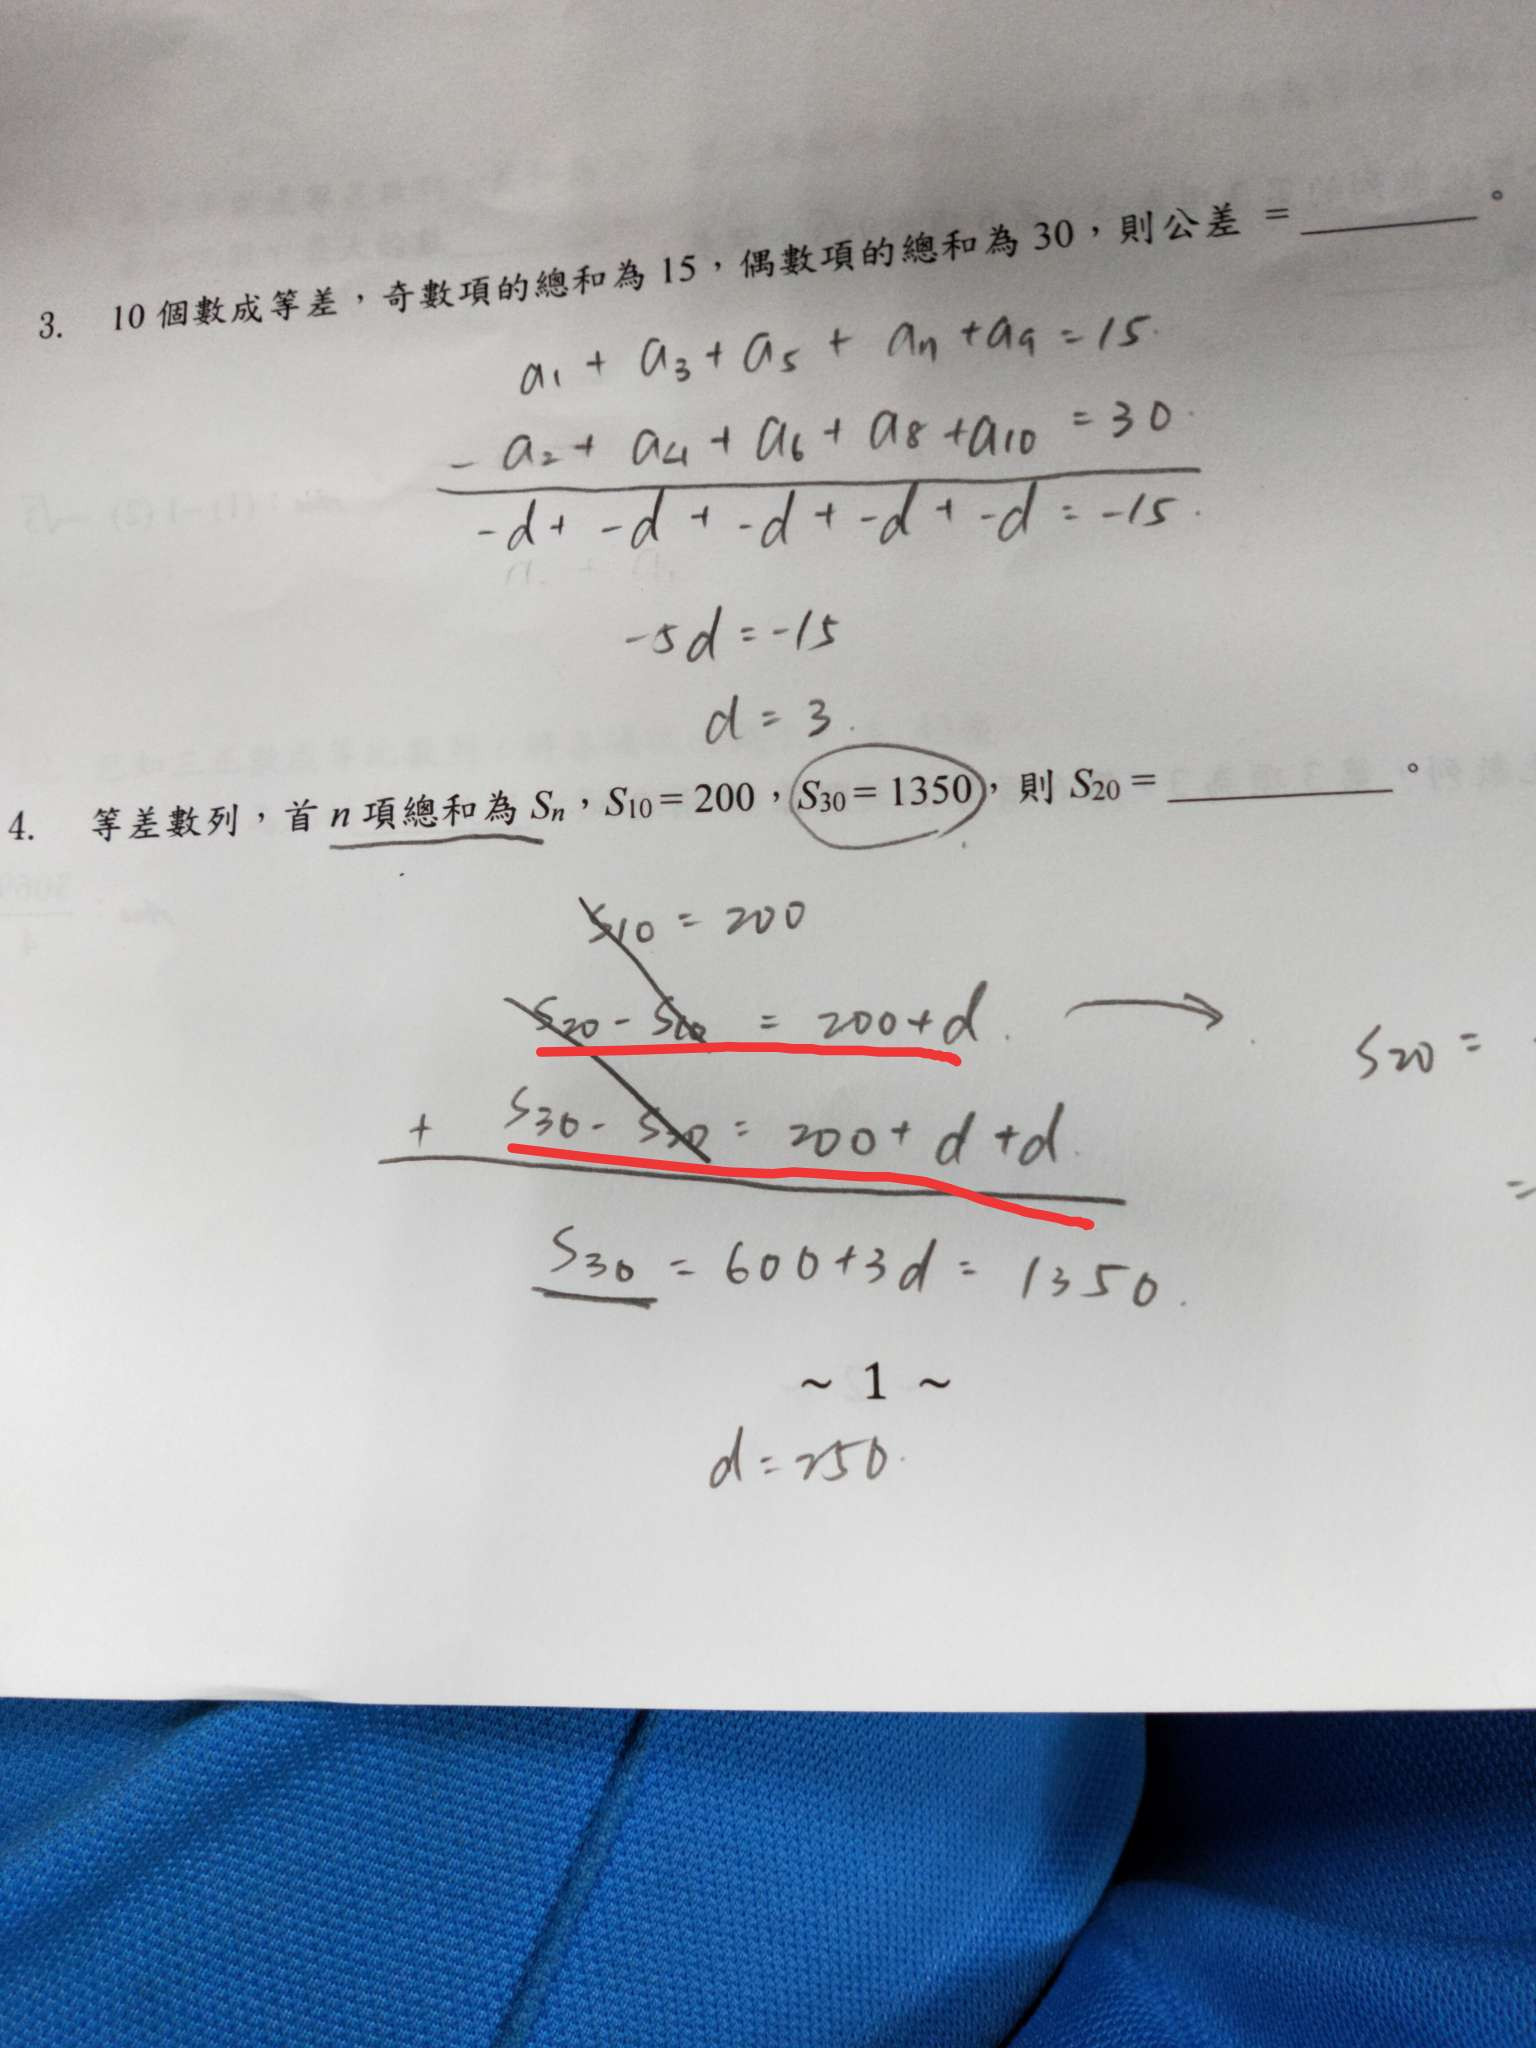 3. 10 個數成等差，奇數項的總和為 15，偶數項的總和為 30，則公差 = ________。
a₁ + a₃ + a₅ + a₇ + a₉ = 15.
- a₂ + a₄ + a₆ + a₈ + a₁₀ = 30.
-d + -d + -d + -d + -d = -15.
-5d = -15
d = 3.
4. 等差數列，首 n 項總和為 Sₙ，S₁₀ = 200，S₃₀ = 1350，則 S₂₀ = ________。
S₁₀ = 200
S₂₀ - S₁₀ = 200 + d. →
S₂₀ =
+ S₃₀ - S₂₀ = 200 + d + d.
=
S₃₀ = 600 + 3d = 1350.
~ 1 ~
d = 250.